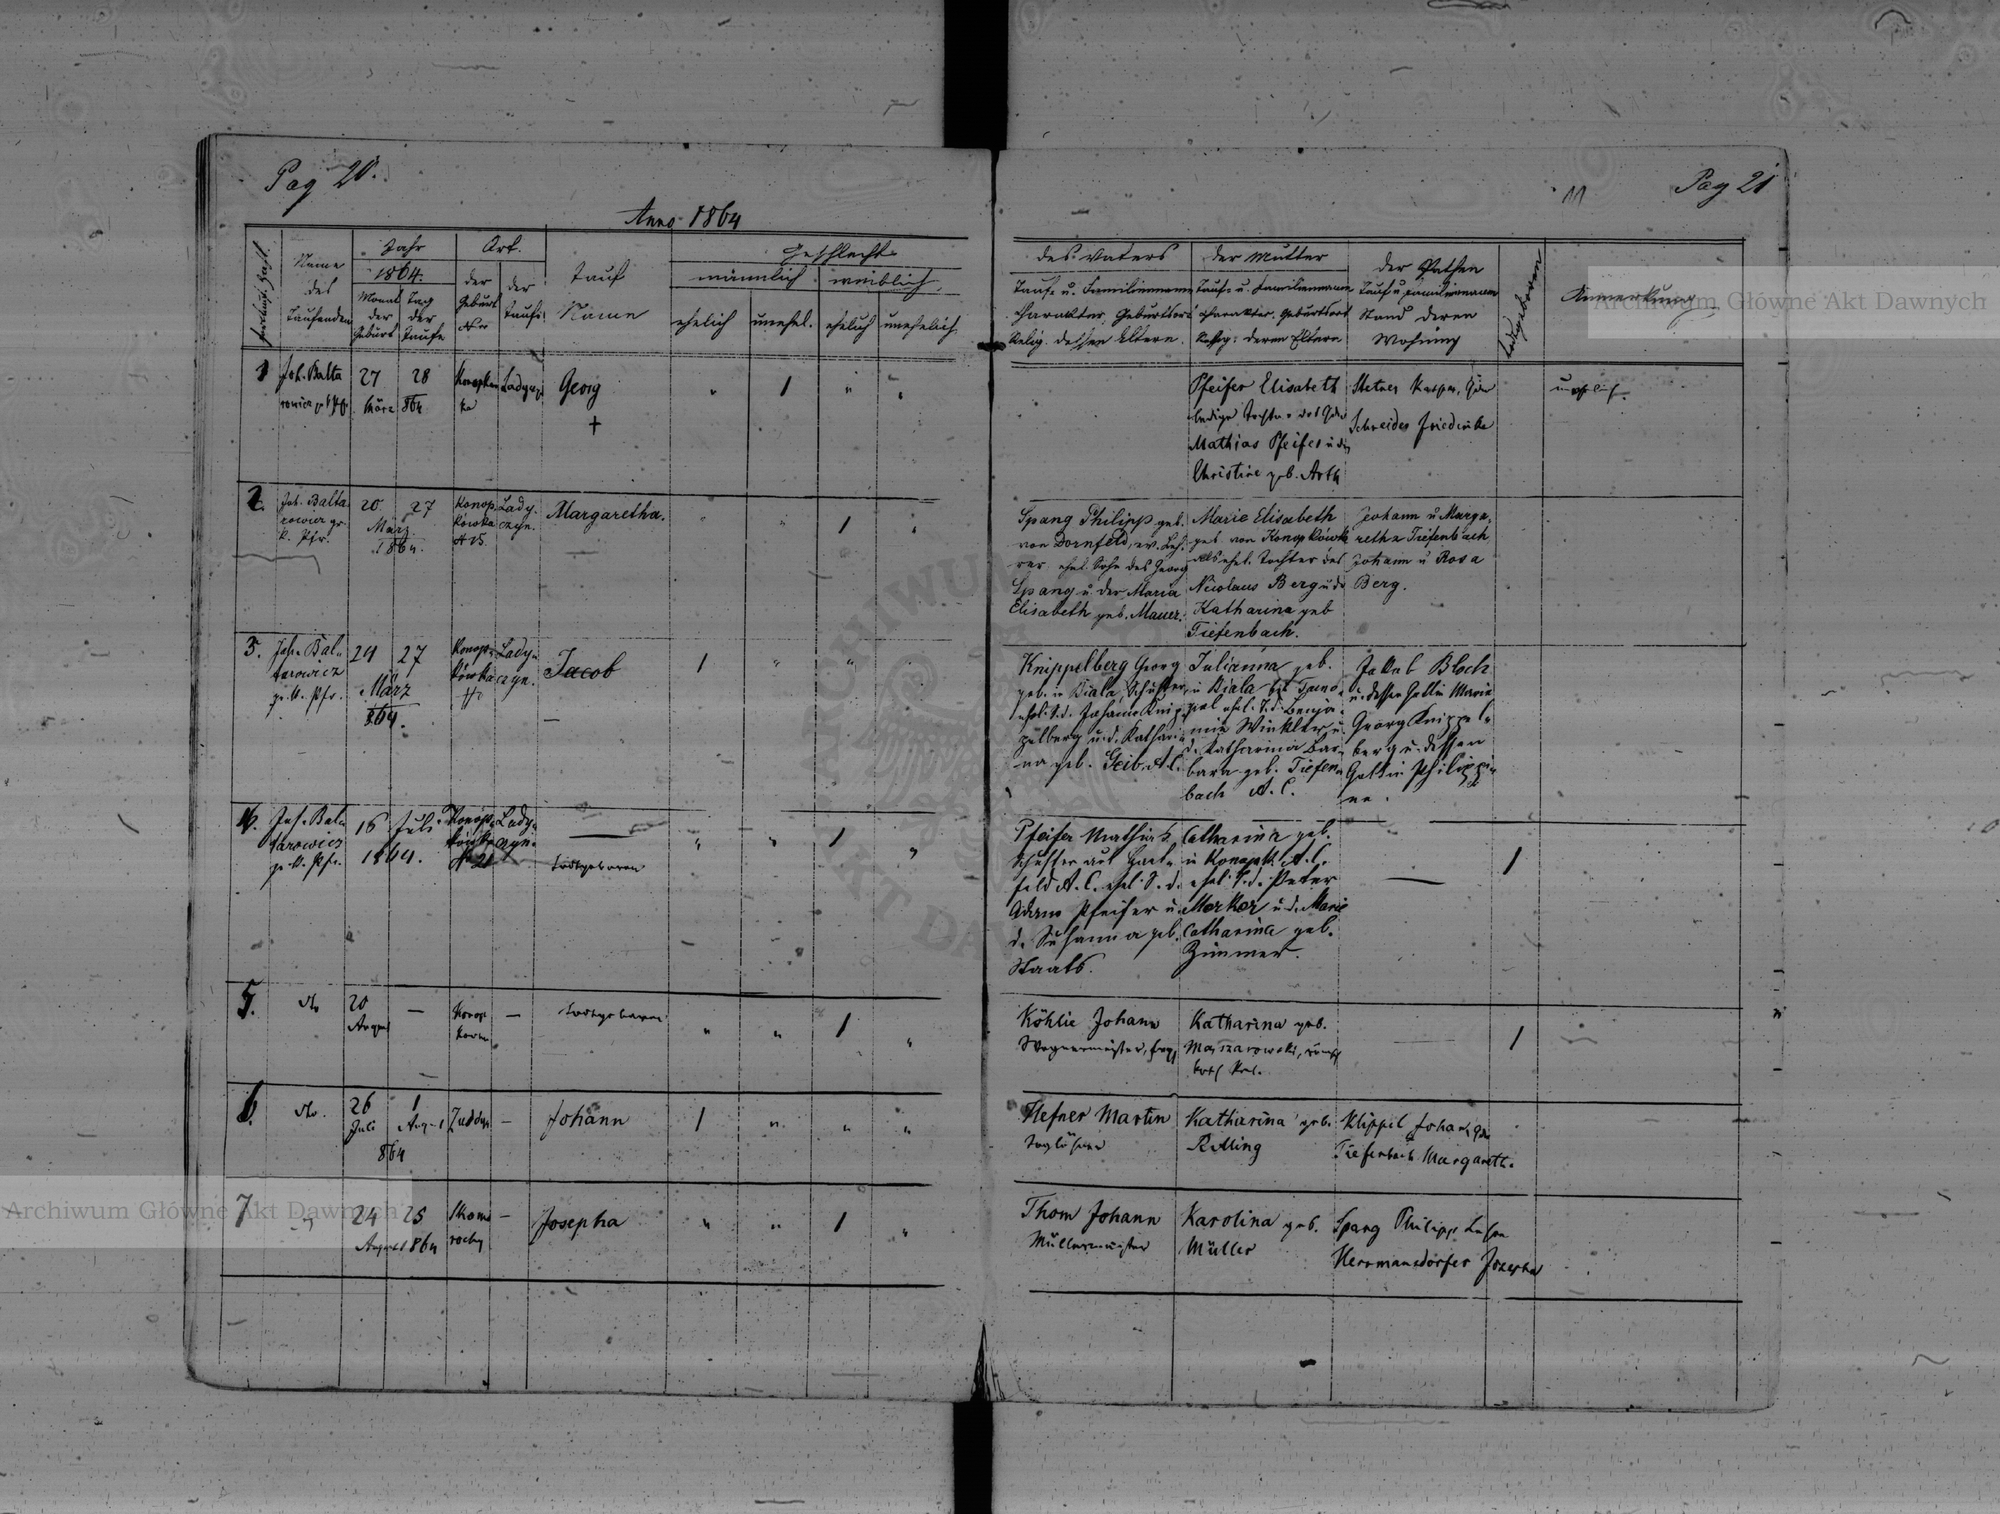 Pag 20.
Anno 1864
Name des Taufenden
Jahr 1864.
Monat der Geburt
Tag der Taufe
Ort
der Geburt Nr
der Taufe
Tauf Name
Geschlecht
männlich weiblich
ehelich unehel. ehelich unehelich
1 Joh. Balta
27 28
März 864
Georg
†
" 1 " "
2. Joh. Balta
rowicz gr.
k. Pfr.
20 27
März
1864.
Konop-
kówka
N 15.
Lady-
czyn.
Margaretha.
" " 1 "
3. Joh. Bal-
tarowicz
gr. k. Pfr.
24 27
März
864.
Konop-
kówka
Lady-
czyn.
Jacob
1 " " "
4. Joh. Bal-
tarowicz
gr. k. Pfr.
16 Juli
1864.
Konop-
kówka
N 21
Lady-
czyn.
todtgeboren
" " 1 "
5. dto
20
August
—
Konop
—
todtgeboren
" " 1 "
6. dto.
26
Juli
1
August
864
—
Johann
1 " " "
7 "
24 25
August 864
—
Josepha
" " 1 "
Pag 21
des Vaters
Tauf- u. Familienname
Charakter, Geburtsort
Relig. dessen Eltern.
der Mutter
Tauf- u. Familienname
Charakter, Geburtsort
Relig: deren Eltern
der Pathen
Tauf u Familienname
Stand deren
Wohnung
todtgeboren
Anmerkung
Pfeifer Elisabeth
ledige Tochter des
Mathias Pfeifer u der
Christine geb. Arth
Stetner Kaspar,
Schreider Friederike
unehelich.
Spang Philipp geb.
von Dornfeld, ev. Leh-
rer ehel. Sohn des Georg
Spang u der Maria
Elisabeth geb. Mauer.
Marie Elisabeth
geb von Konopkówk
als ehel. Tochter des
Nicolaus Berg u der
Katharina geb
Tiefenbach.
Johann u Marga-
retha Tiefenbach
Johann u Rosa
Berg.
Knippelberg Georg
geb. in Biala, Schuster,
ehel. S. d. Johann Knip-
pelberg u. d. Kathari-
na geb. Geib. A. C.
Julianna geb.
in Biala bei Tarno-
pol ehel. T. d. Benja-
min Winkler u
d. Katharina Bar-
bara geb. Tiefen-
bach A. C.
Jakob Bloch
u. dessen Gattin Maria
Georg Knippel-
berg u. dessen
Gattin Philippi-
ne.
Pfeifer Mathias
Schuster aus Hart-
feld A. C. ehel. S. d.
Adam Pfeifer u.
d. Susanna geb.
Staats.
Catharina geb.
in Konopk. A. C.
ehel. T. d. Peter
Merker u d. Marie
Catharina geb.
Zimmer.
—
1
Köhlie Johann
Wagnermeister,
Katharina geb.
1
Hefner Martin
Taglöhner
Katharina geb.
Klippel Johann,
Tiefenbach Margareth.
Thom Johann
Müllermeister
Karolina geb.
Müller
Spang Philipp Lehrer
Herrmansdörfer Josepha
Archiwum Główne Akt Dawnych
Archiwum Główne Akt Dawnych